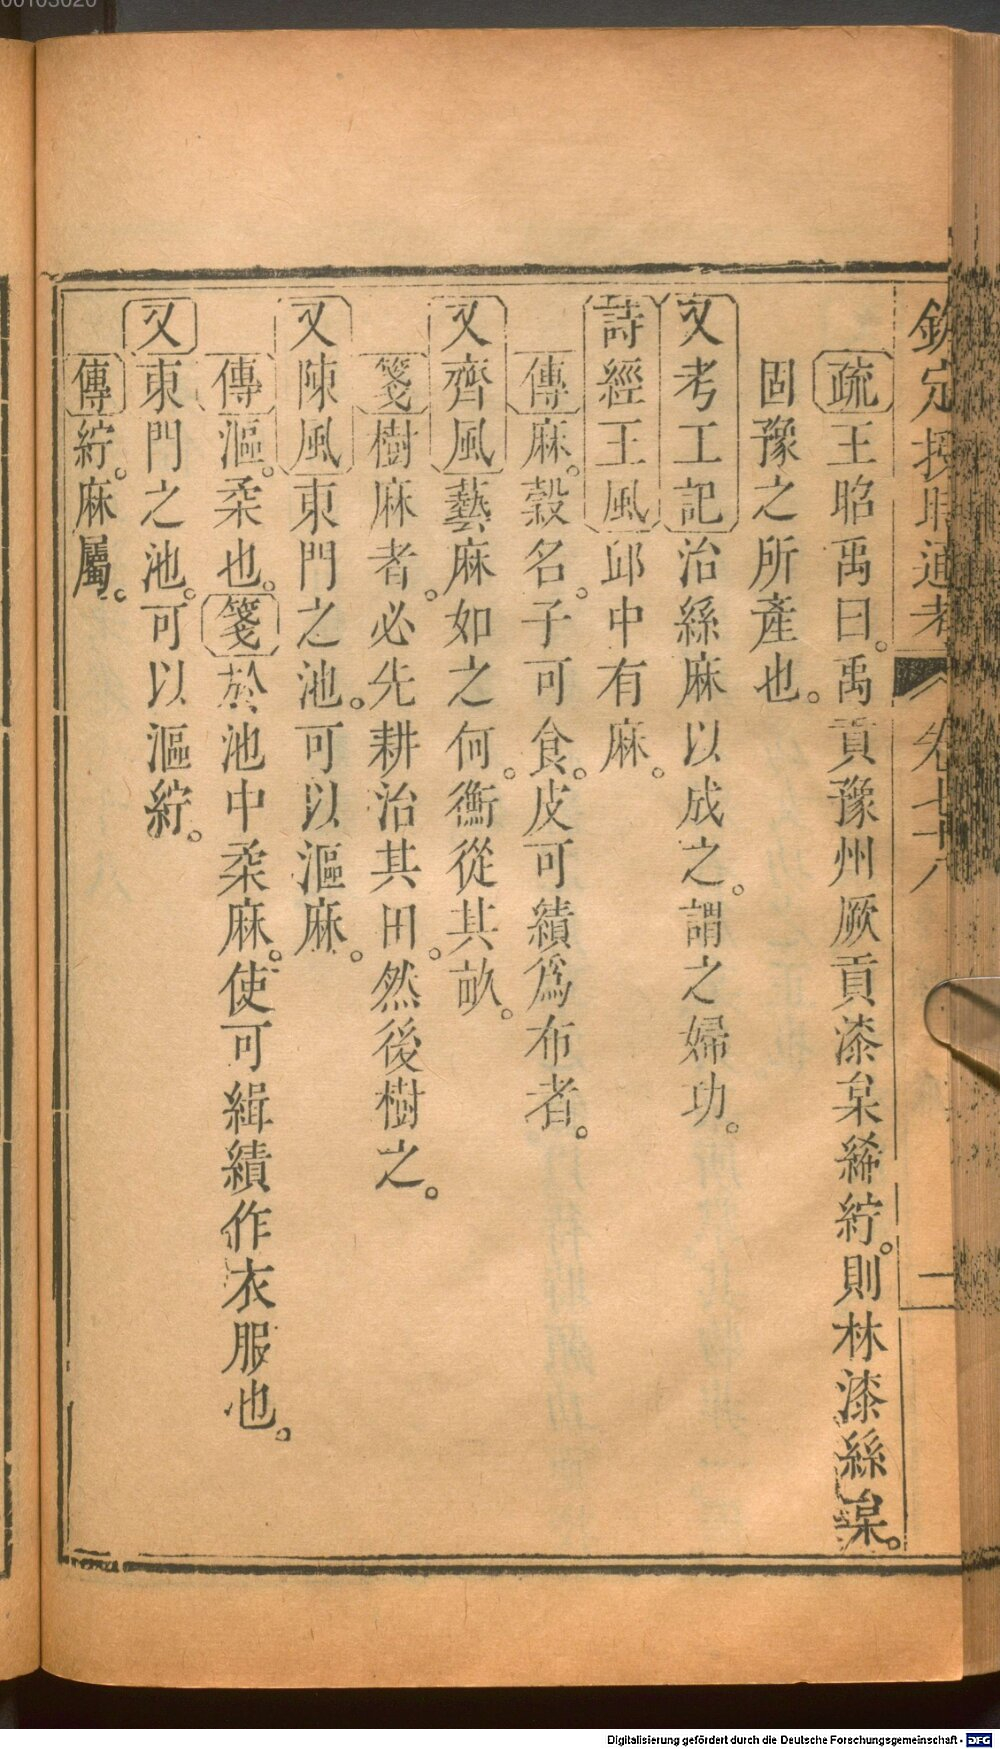 欽定授時通考 卷七十八 二
疏王昭禹曰。禹貢豫州厥貢漆枲絺紵。則林漆絲枲。
固豫之所產也。
又考工記治絲麻以成之。謂之婦功。
詩經王風邱中有麻。
傳麻。穀名。子可食。皮可績爲布者。
又齊風藝麻如之何。衡從其畝。
箋樹麻者。必先耕治其田。然後樹之。
又陳風東門之池。可以漚麻。
傳漚。柔也。箋於池中柔麻。使可緝績作衣服也。
又東門之池。可以漚紵。
傳紵。麻屬。
00103020
Digitalisierung gefördert durch die Deutsche Forschungsgemeinschaft - DFG